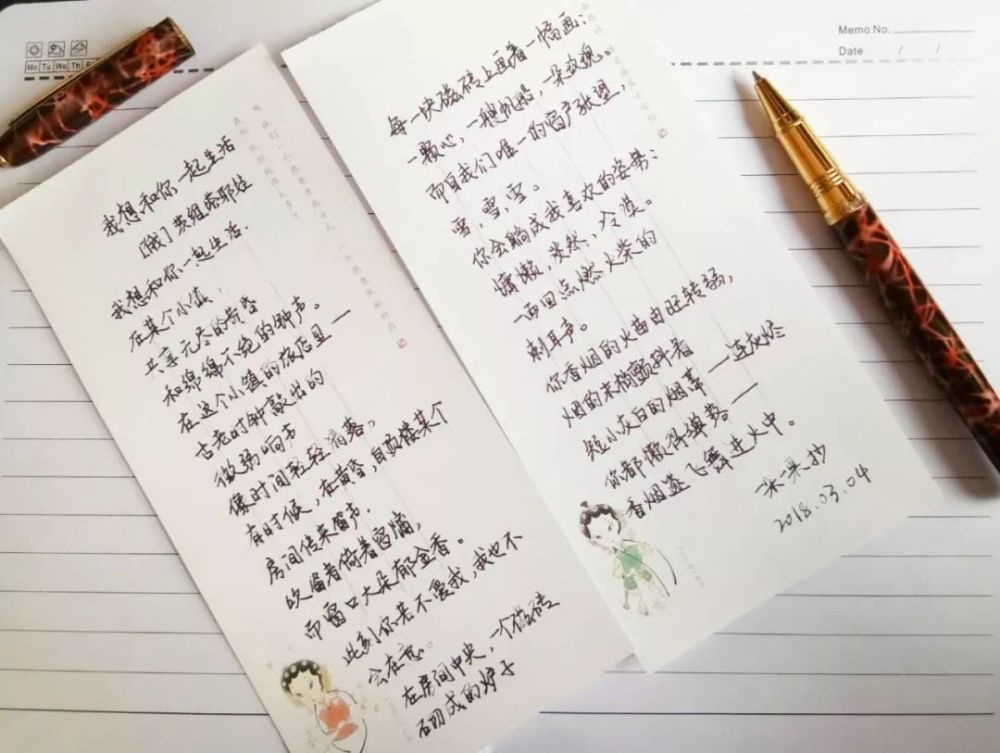 Memo No.
Date / /
Mo Tu We Th Fr
我想和你一起生活
[俄]茨维塔耶娃
我想和你一起生活.
在某个小镇,
共享无尽的黄昏
和绵绵不绝的钟声。
在这个小镇的旅店里—
古老时钟敲出的
微弱响声
像时间轻轻滴落。
有时候,在黄昏,自顶楼某个
房间传来笛声.
吹笛者倚着窗牖,
而窗口大朵郁金香。
此刻你若不爱我,我也不
会在意。
在房间中央,一个磁砖
砌成的炉子
每一块磁砖上画着一幅画:
一颗心,一艘帆船,一朵玫瑰
而自我们唯一的窗户张望,
雪,雪,雪。
你会躺成我喜欢的姿势:
慵懒,淡然,冷漠。
一两回点燃火柴的
刺耳声。
你香烟的火苗由旺转弱,
烟的末梢颤抖着
短小灰白的烟蒂—连灰烬
你都懒得弹落—
香烟遂飞舞进火中。
一米一果抄
2018.03.04